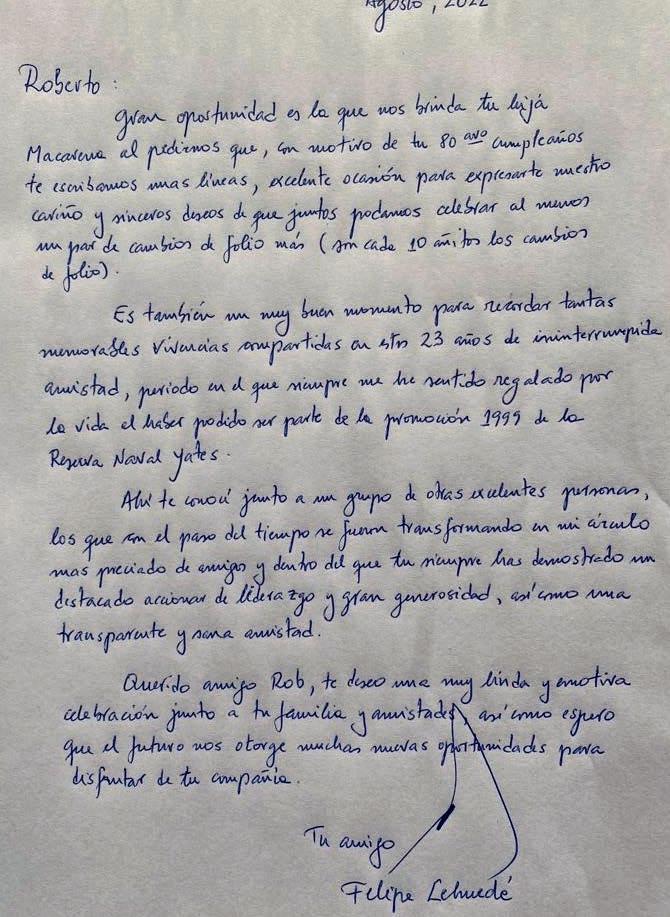 Agosto, 2022
Roberto:
Gran oportunidad es la que nos brinda tu hija
Macarena al pedirnos que, con motivo de tu 80 avo cumpleaños
te escribamos unas lineas, excelente ocasión para expresarte nuestro
cariño y sinceros deseos de que juntos podamos celebrar al menos
un par de cambios de folio más (son cada 10 añitos los cambios
de folio).
Es también un muy buen momento para recordar tantas
memorables vivencias compartidas en estos 23 años de ininterrumpida
amistad, periodo en el que siempre me he sentido regalado por
la vida el haber podido ser parte de la promoción 1999 de la
Reserva Naval Yates.
Ahí te conocí junto a un grupo de otras excelentes personas,
los que con el paso del tiempo se fueron transformando en mi círculo
mas preciado de amigos y dentro del que tu siempre has demostrado un
destacado accionar de liderazgo y gran generosidad, así como una
transparente y sana amistad.
Querido amigo Rob, te deseo una muy linda y emotiva
celebración junto a tu familia y amistades, así como espero
que el futuro nos otorge muchas nuevas oportunidades para
disfrutar de tu compañía.
Tu amigo
Felipe Lehuedé